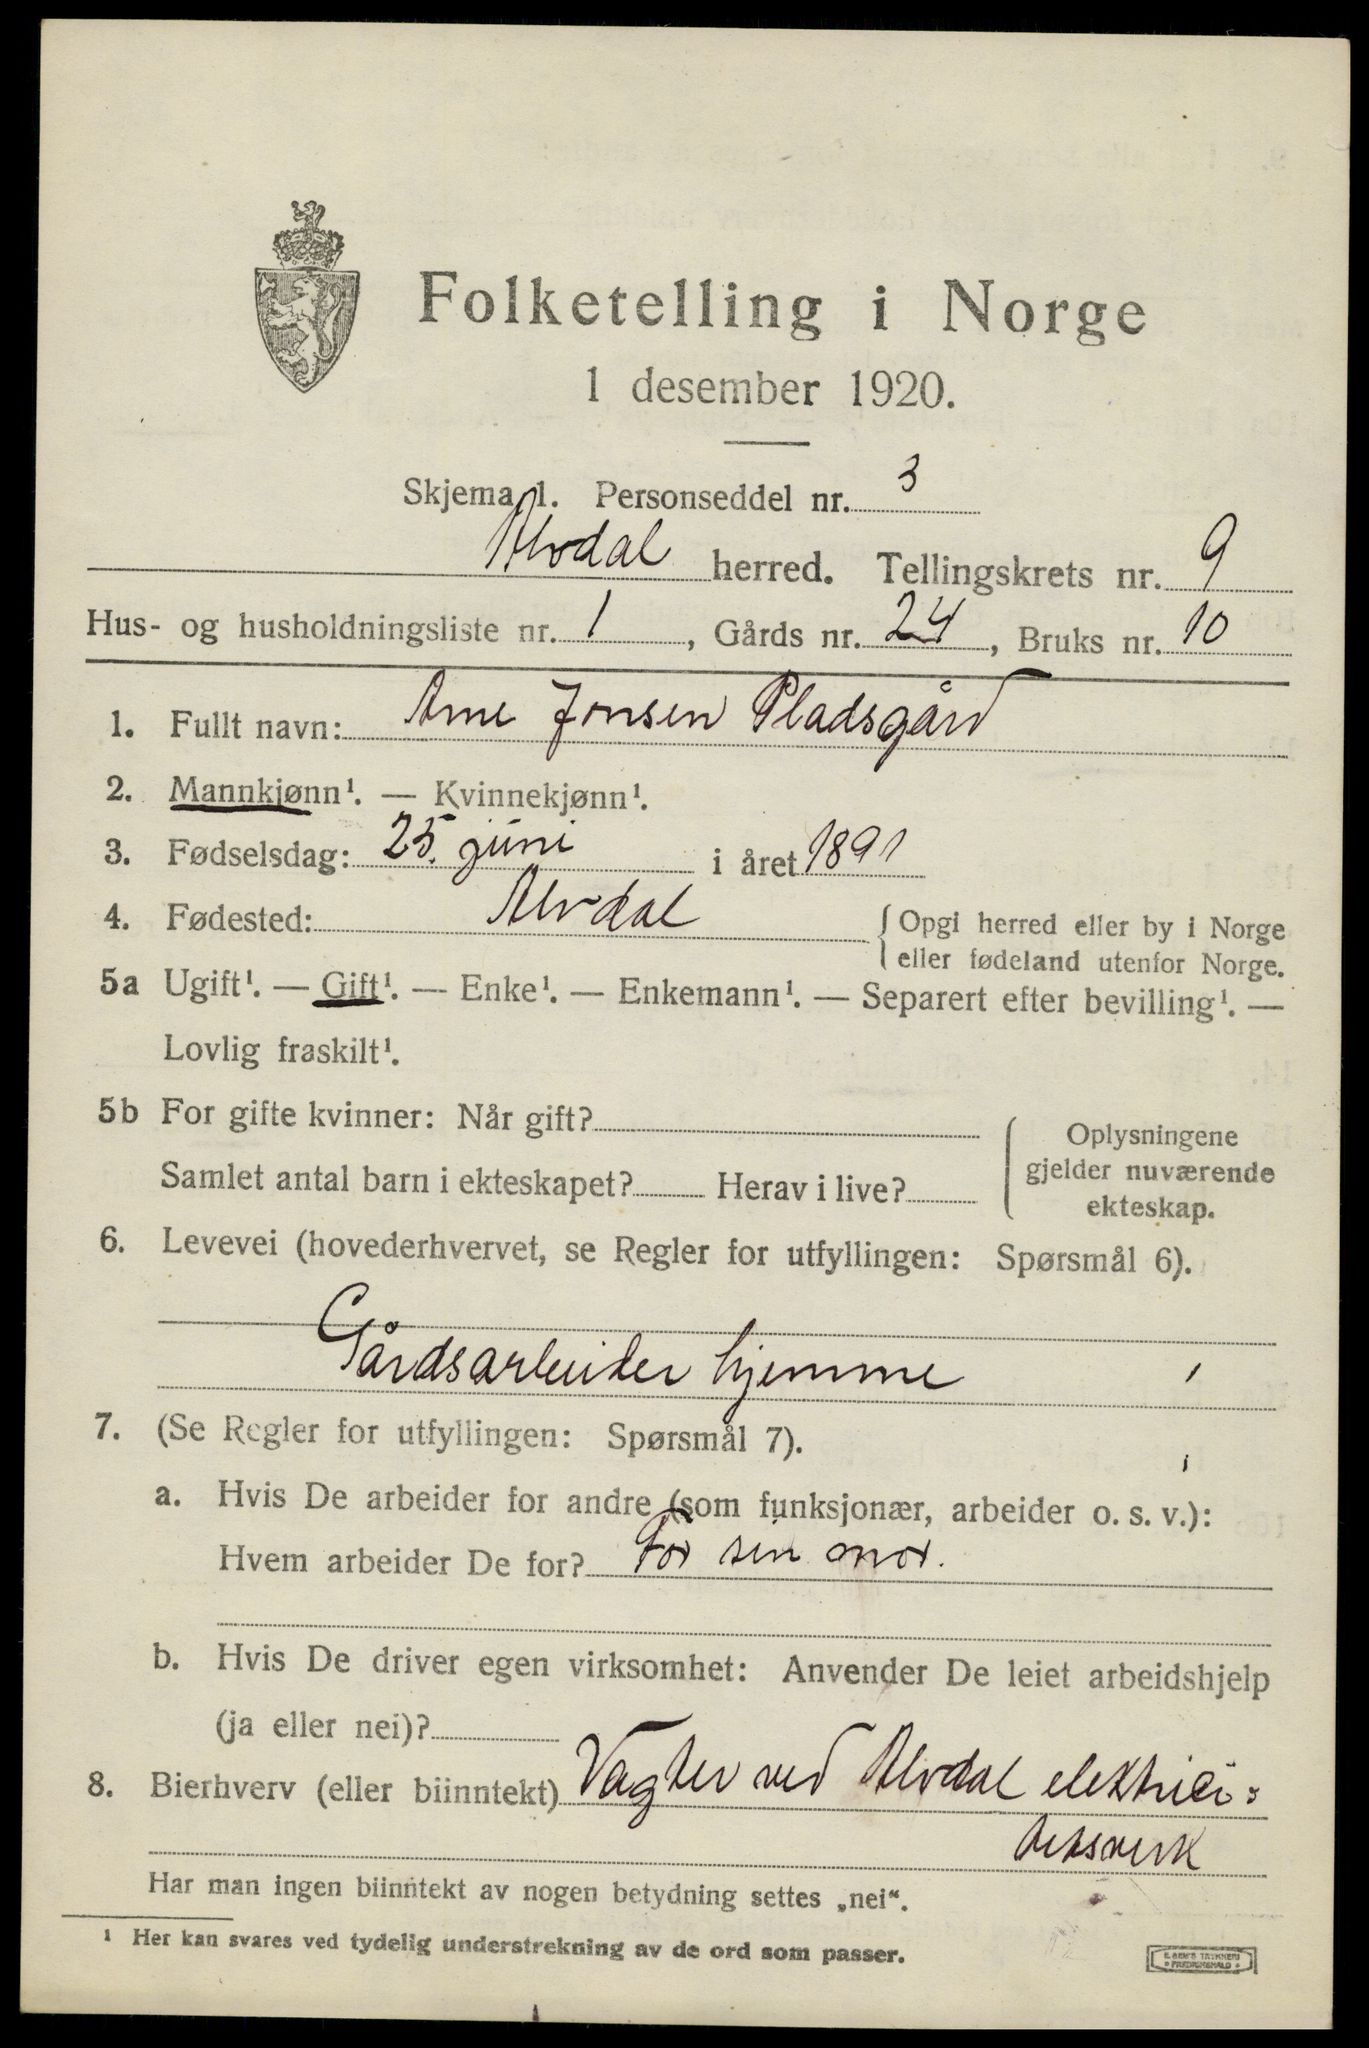 Folketelling i Norge
1 desember 1920.
Skjema 1. Personseddel nr. 3
Alvdal herred. Tellingskrets nr. 9
Hus- og husholdningsliste nr. 1, Gårds nr. 24, Bruks nr. 10
1. Fullt navn: Arne Jonsen Pladsgård
2. Mannkjønn¹. — Kvinnekjønn¹.
3. Fødselsdag: 25. juni i året 1891
4. Fødested: Alvdal { Opgi herred eller by i Norge
eller fødeland utenfor Norge.
5a Ugift¹. — Gift¹. — Enke¹. — Enkemann¹. — Separert efter bevilling¹. —
Lovlig fraskilt¹.
5b For gifte kvinner: Når gift?
Samlet antal barn i ekteskapet? Herav i live?
Oplysningene
gjelder nuværende
ekteskap.
6. Levevei (hovederhvervet, se Regler for utfyllingen: Spørsmål 6).
Gårdsarbeider hjemme
7. (Se Regler for utfyllingen: Spørsmål 7).
a. Hvis De arbeider for andre (som funksjonær, arbeider o. s. v.):
Hvem arbeider De for? For sin mor.
b. Hvis De driver egen virksomhet: Anvender De leiet arbeidshjelp
(ja eller nei)?
8. Bierhverv (eller biinntekt) Vagter ved Alvdal elektrici=
tetsverk
Har man ingen biinntekt av nogen betydning settes „nei“.
¹ Her kan svares ved tydelig understrekning av de ord som passer.
TRYKKERI
FREDRIKSHALD